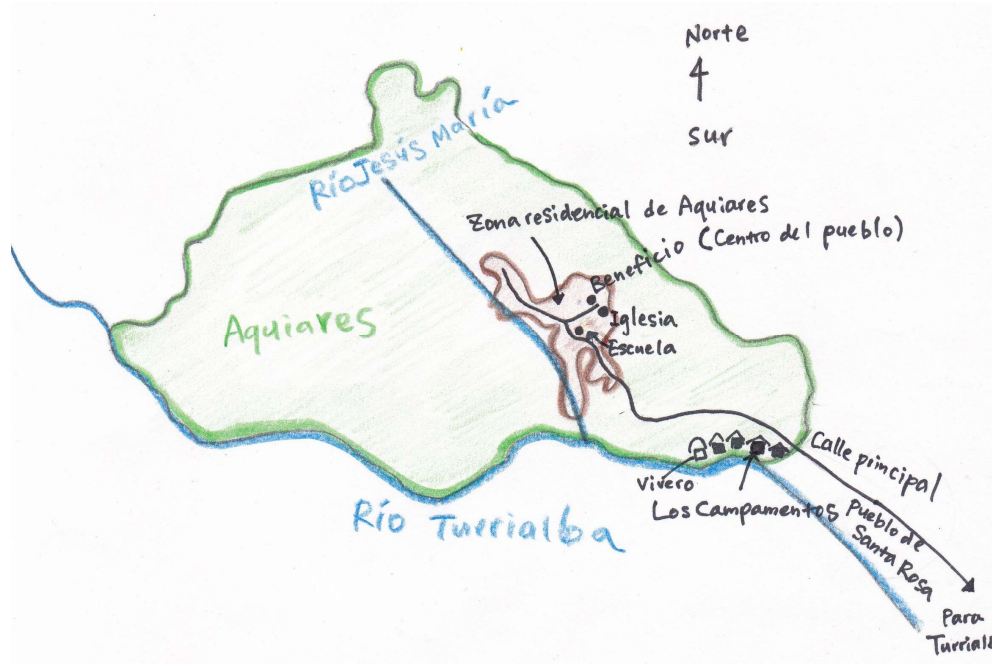 Norte
sur
Río Jesús María
Zona residencial de Aquiares
Beneficio (Centro del pueblo)
Iglesia
Escuela
Aquiares
Calle principal
Vivero
Los Campamentos
Pueblo de
Santa Rosa
Río Turrialba
Para